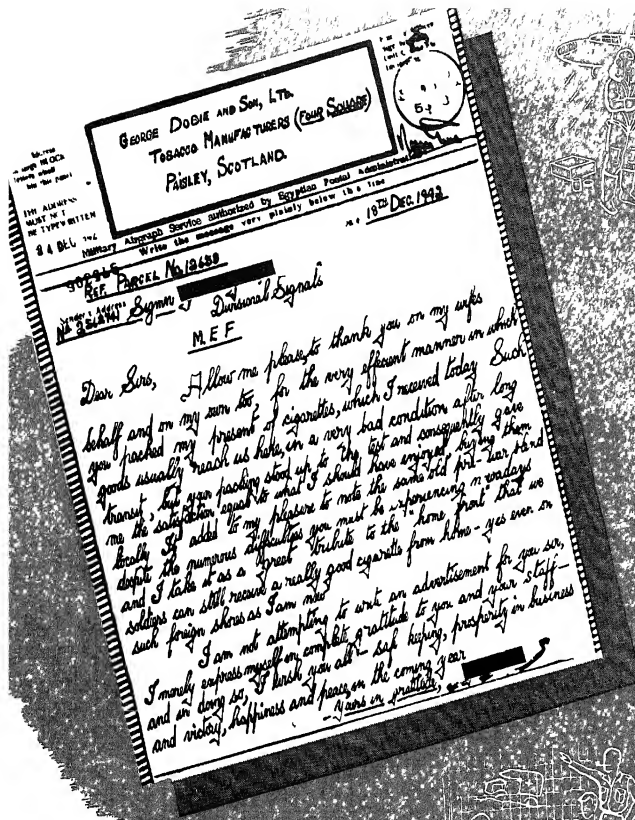 GEORGE DOBIE AND SON, LTD.
TOBACCO MANUFACTURERS (FOUR SQUARE)
PAISLEY, SCOTLAND.
THE ADDRESS
MUST NOT
BE TYPEWRITTEN
Military Airgraph Service authorized by Egyptian Postal Administration
Write the message very plainly below this line
18TH DEC. 1942
REF. PARCEL No. 12650
Sender's Address
Sigmn
Divisional Signals
M.E.F
Dear Sirs, Allow me please, to thank you on my wifes
behalf and on my own too for the very effecient manner in which
you packed my present of cigarettes, which I received today Such
goods usually reach us here, in a very bad condition after long
transit, but your packing stood up to the test and consequently gave
me the satisfaction equal to what I should have enjoyed buying them
locally. It added to my pleasure to note the same old pre-war brand
depite the numerous difficulties you must be experiencing nowadays
and I take it as a great tribute to the "home front" that we
soldiers can still receive a really good cigarette from home - yes even on
such foreign shores as I am now
I am not attempting to write an advertisement for you sir,
I merely express myself in complete gratitude to you and your staff—
and in doing so, I wish you all - safe keeping, prosperity in business
and victory, happiness and peace, in the coming year
Yours in gratitude,